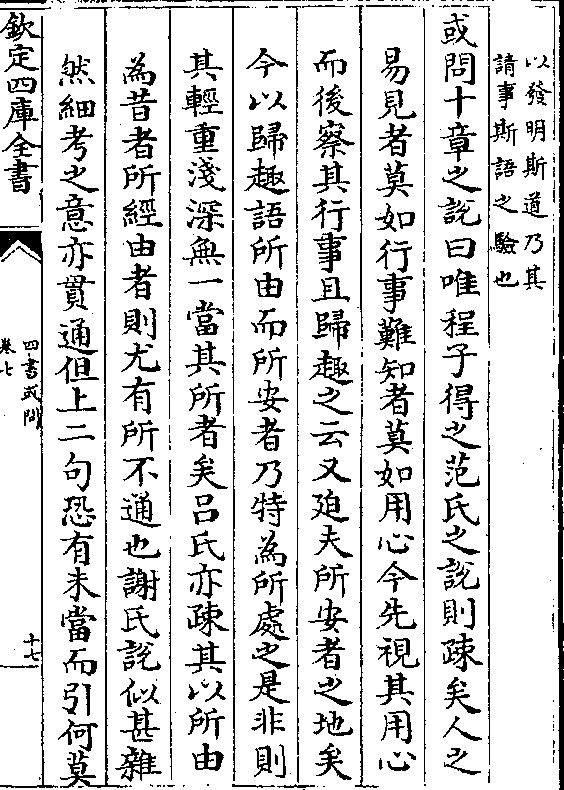 以發明斯道乃其
請事斯語之驗也
或問十章之說曰唯程子得之范氏之說則疎矣人之
易見者莫如行事難知者莫如用心今先視其用心
而後察其行事且歸趣之云又廹夫所安者之地矣
今以歸趣語所由而所安者乃特為所處之是非則
其輕重淺深無一當其所者矣吕氏亦疎其以所由
為昔者所經由者則尤有所不通也謝氏說似甚雜
然細考之意亦貫通但上二句恐有未當而引何莫
欽定四庫全書
四書或問
卷七
十七